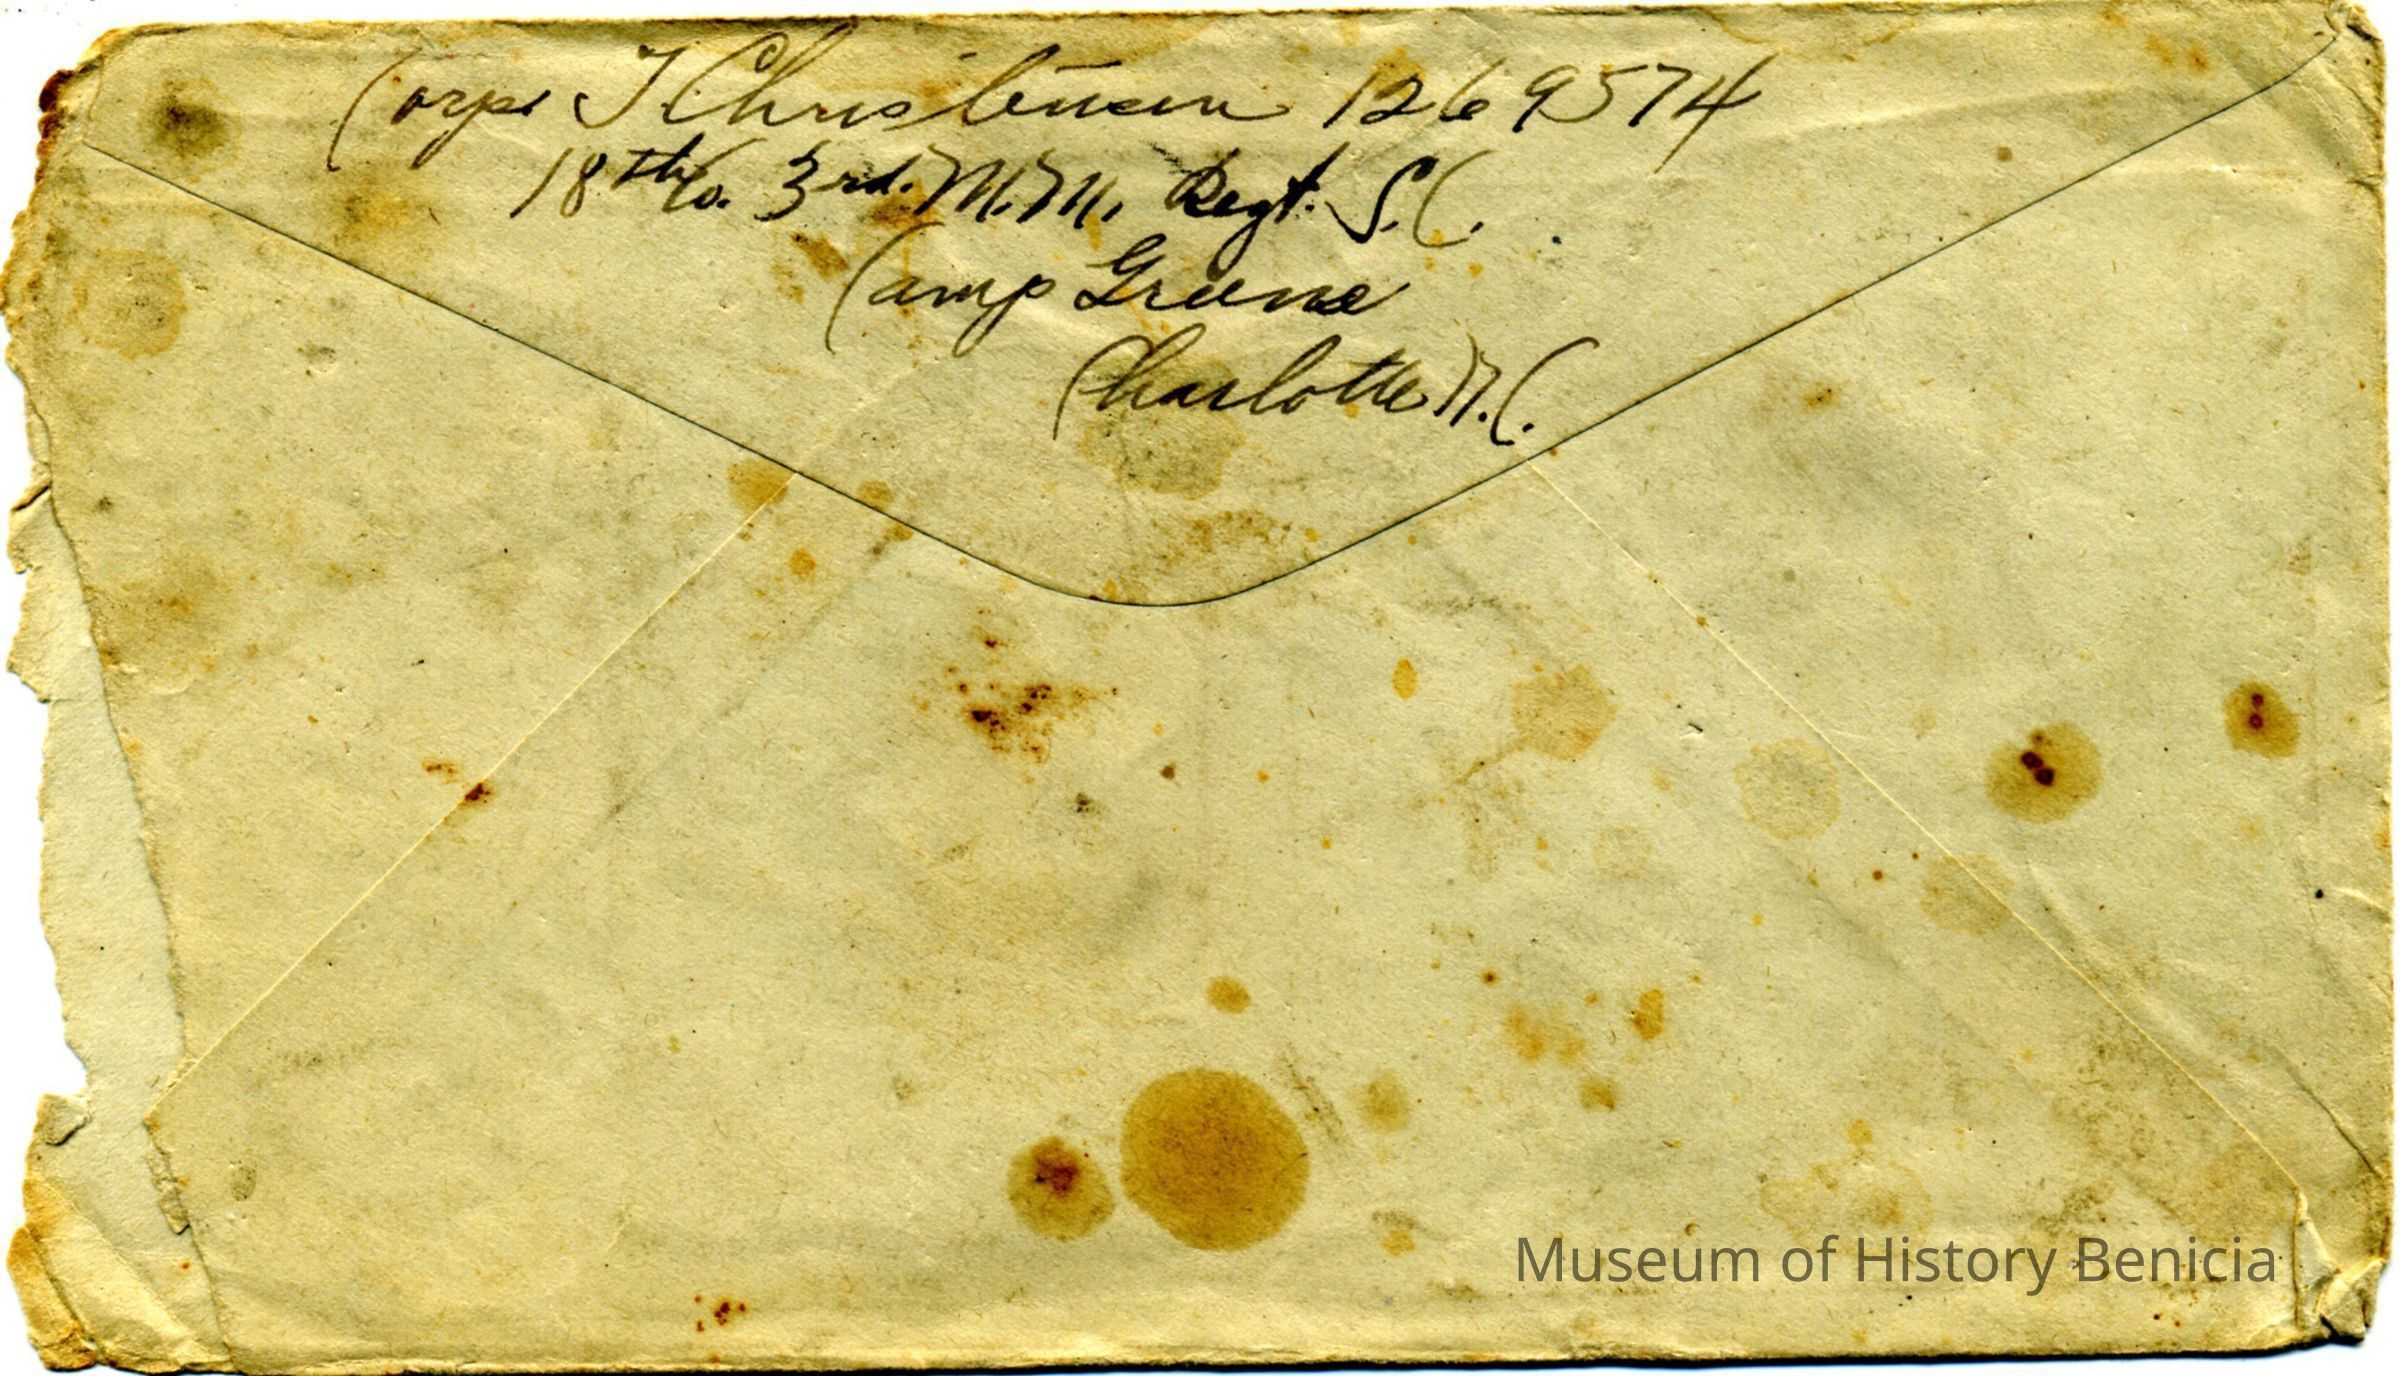 Corp. J Christensen 1269574
18th Co. 3rd. M.M. Regt. S.C.
Camp Greene
Charlotte N.C.
Museum of History Benicia